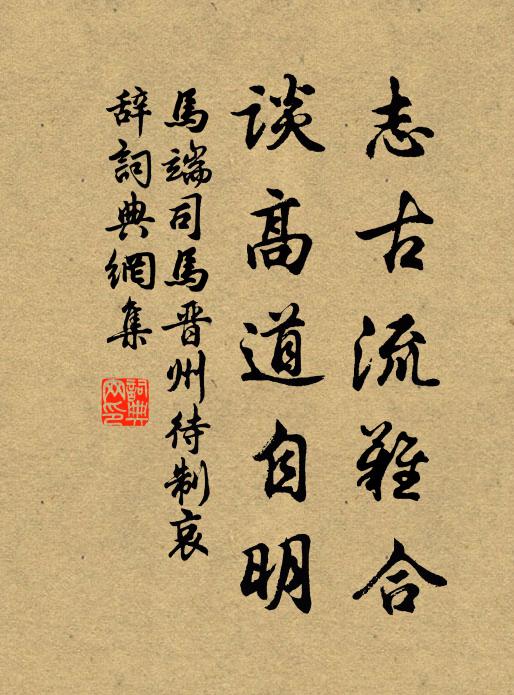 志古流難合
談高道自明
馬端司馬晋州待制哀
辞詞典網集
詞典網印